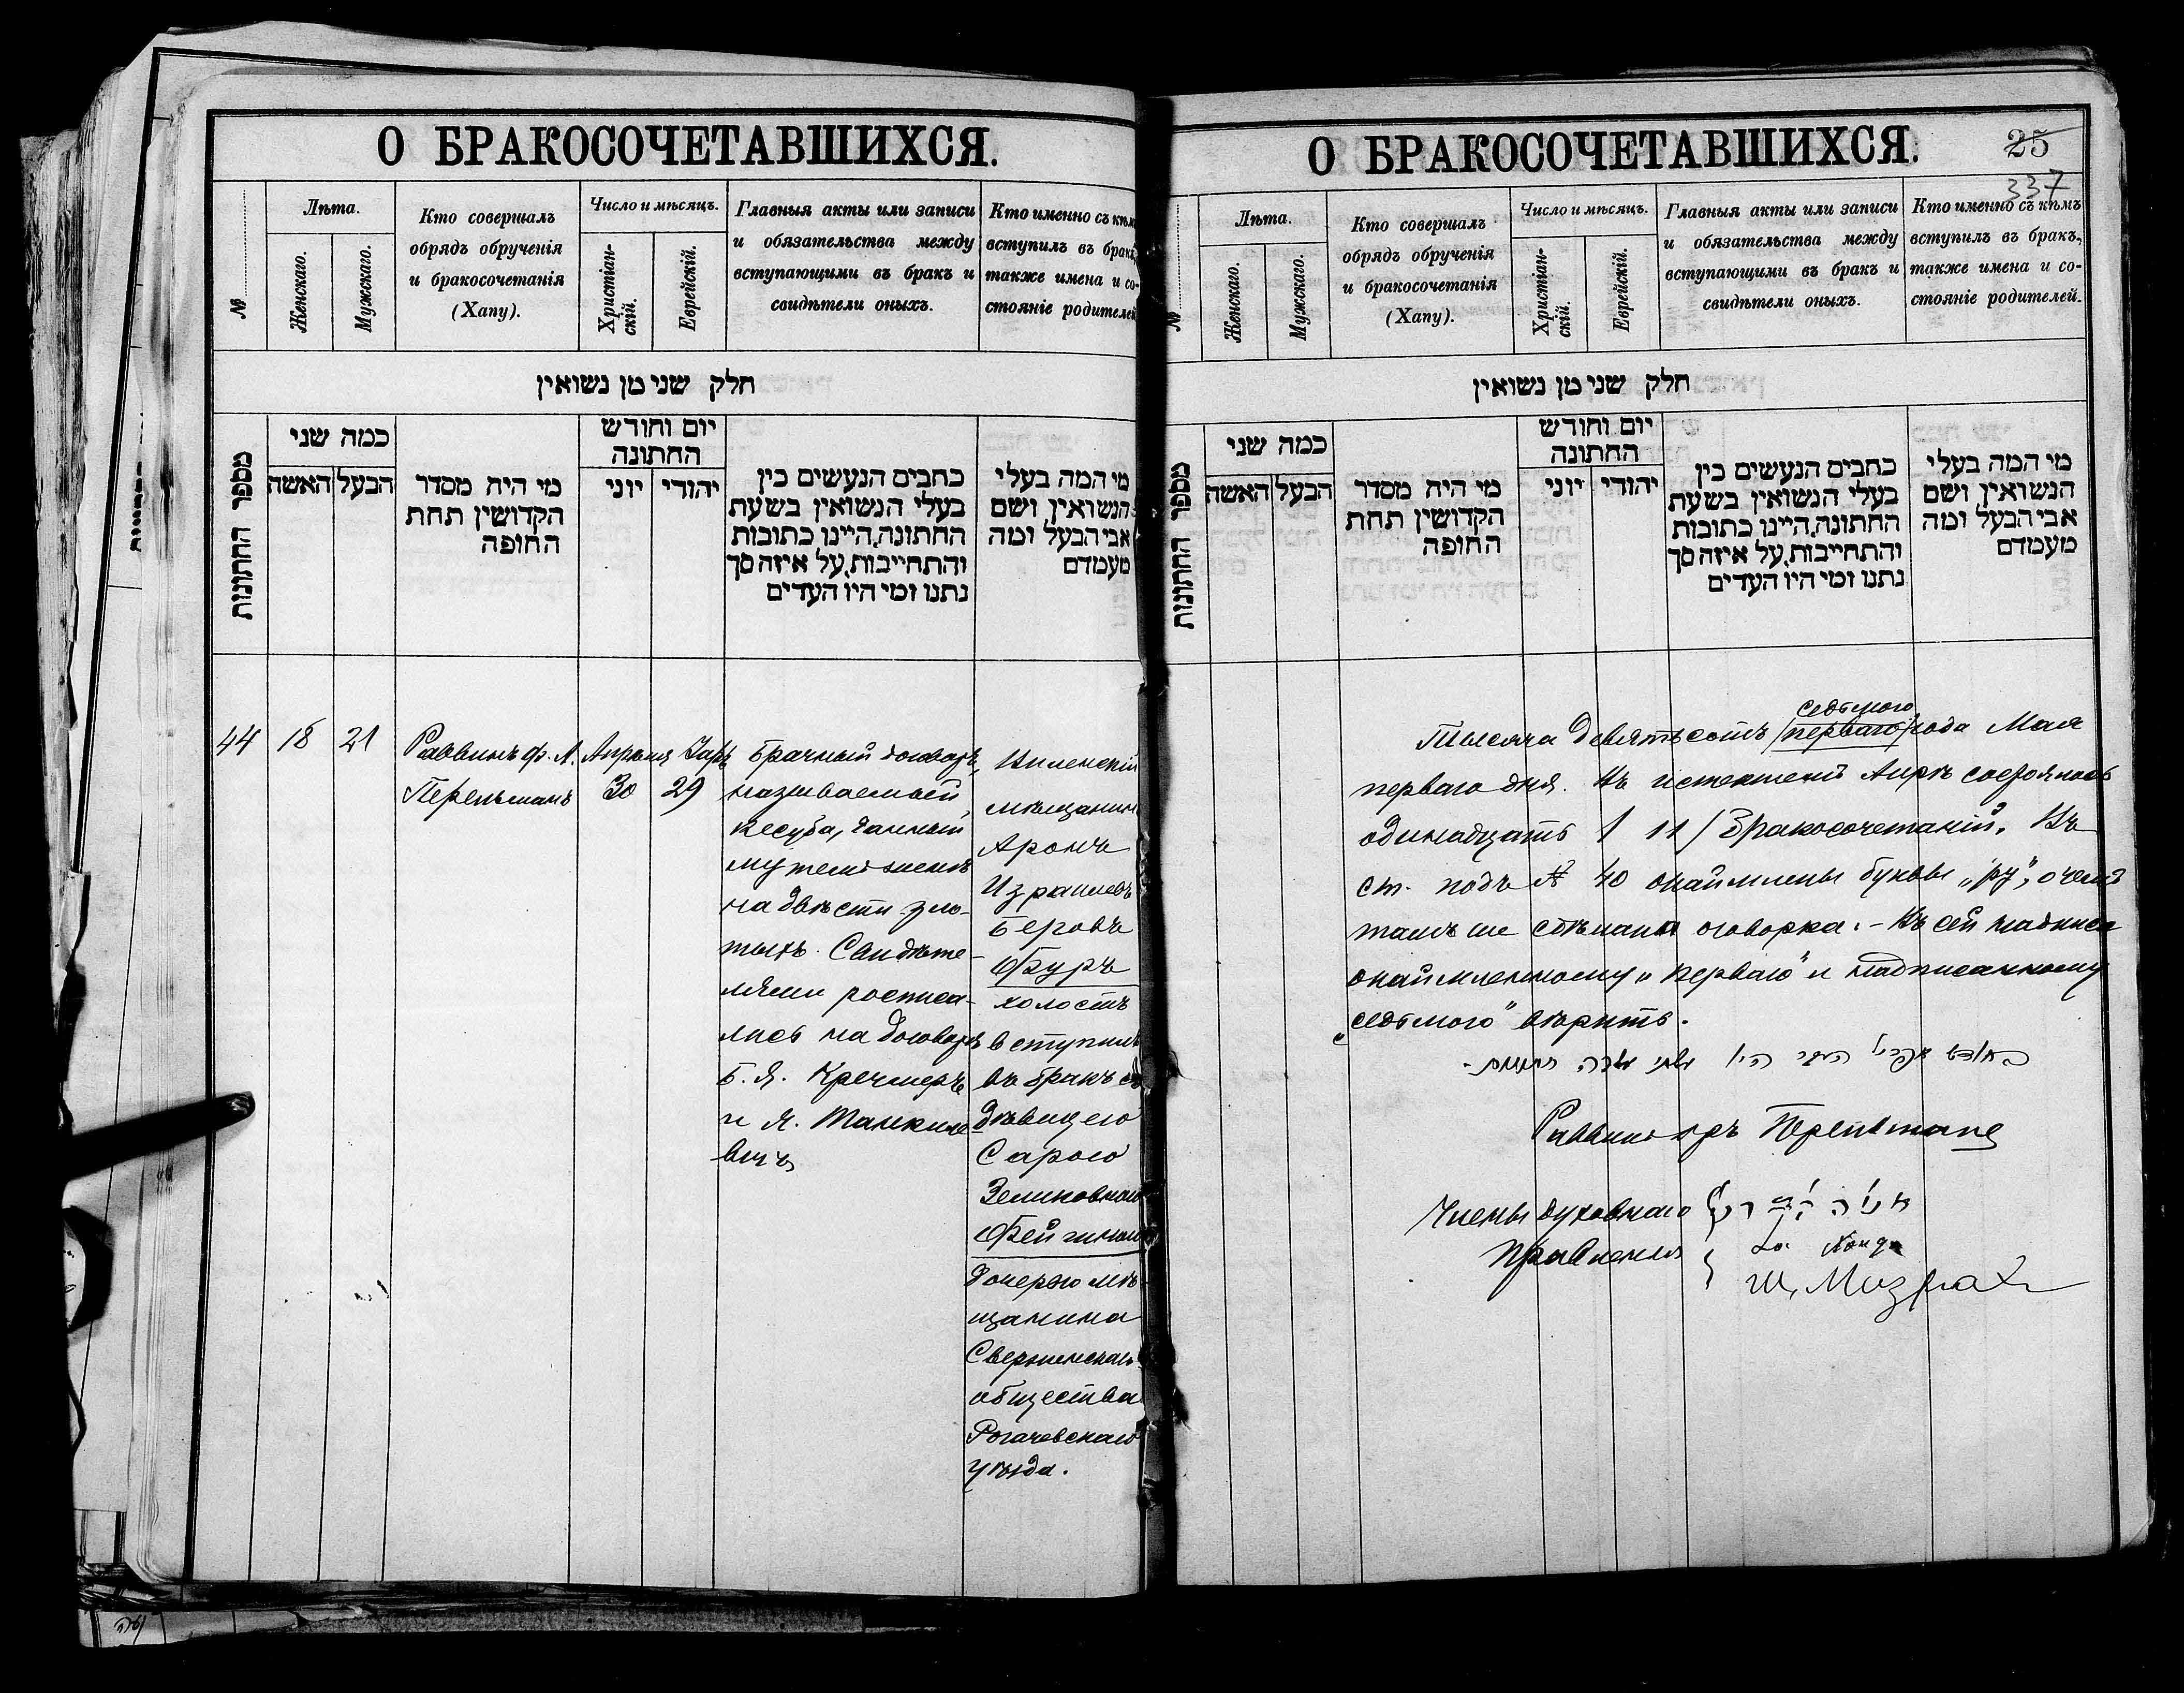 О БРАКОСОЧЕТАВШИХСЯ.
№
Лѣта.
Женскаго.
Мужскаго.
Кто совершалъ
обрядъ обрученія
и бракосочетанія
(Хапу).
Число и мѣсяцъ.
Христіан-
скій.
Еврейскій.
Главныя акты или записи
и обязательства между
вступающими въ бракъ и
свидѣтели оныхъ.
Кто именно съ кѣмъ
вступилъ въ бракъ,
также имена и со-
стояніе родителей
חלק שני מן נשואין
מספר החתונות
כמה שני
האשה
הבעל
מי היה מסדר
הקדושין תחת
החופה
יום וחודש
החתונה
יוני
יהודי
כתבים הנעשים בין
בעלי הנשואין בשעת
החתונה, היינו כתובות
והתחייבות, על איזה סך
נתנו ומי היו העדים
מי המה בעלי
הנשואין ושם
אבי הבעל ומה
מעמדם
44
18
21
Раввинъ Ф. А.
Перельманъ
Апрѣля
30
Іаръ
29
Брачный договоръ,
называемый
кесуба, данный
мужемъ женѣ
на двѣсти зло-
тыхъ. Свидѣте-
лями росписа-
лись на договорѣ
Б. Я. Кречмеръ
и Я. Манкиле
вичъ
Виленскій
мѣщанинъ
Аронъ
Израилевъ
Беровъ
Фуръ
холостъ
вступилъ
въ бракъ съ
дѣвицею
Сарою
Зеликовною
Фейгиною
дочерью мѣ-
щанина
Свержинскаго
общества
Рогачевскаго
уѣзда.
О БРАКОСОЧЕТАВШИХСЯ.
25
337
№
Лѣта.
Женскаго.
Мужскаго.
Кто совершалъ
обрядъ обрученія
и бракосочетанія
(Хапу).
Число и мѣсяцъ.
Христіан-
скій.
Еврейскій.
Главныя акты или записи
и обязательства между
вступающими въ бракъ и
свидѣтели оныхъ.
Кто именно съ кѣмъ
вступилъ въ бракъ,
также имена и со-
стояніе родителей.
חלק שני מן נשואין
מספר החתונות
כמה שני
האשה
הבעל
מי היה מסדר
הקדושין תחת
החופה
יום וחודש
החתונה
יוני
יהודי
כתבים הנעשים בין
בעלי הנשואין בשעת
החתונה, היינו כתובות
והתחייבות, על איזה סך
נתנו ומי היו העדים
מי המה בעלי
הנשואין ושם
אבי הבעל ומה
מעמדם
седьмого
Тысяча девятьсотъ /перваго/ года Мая
перваго дня. Въ истекшемъ Апрѣ состоялось
одинадцать / 11 / Бракосочетаній. Въ
ст. подъ № 40 окаймлены буквы „ру", о чемъ
тамъ же сдѣлана оговорка. - Въ сей надписи
окаймленному „перваго" и надписанному
„седьмого" вѣрить.
Раввинъ Перельманъ
Члены духовнаго
правленія
Ш. Мизрах